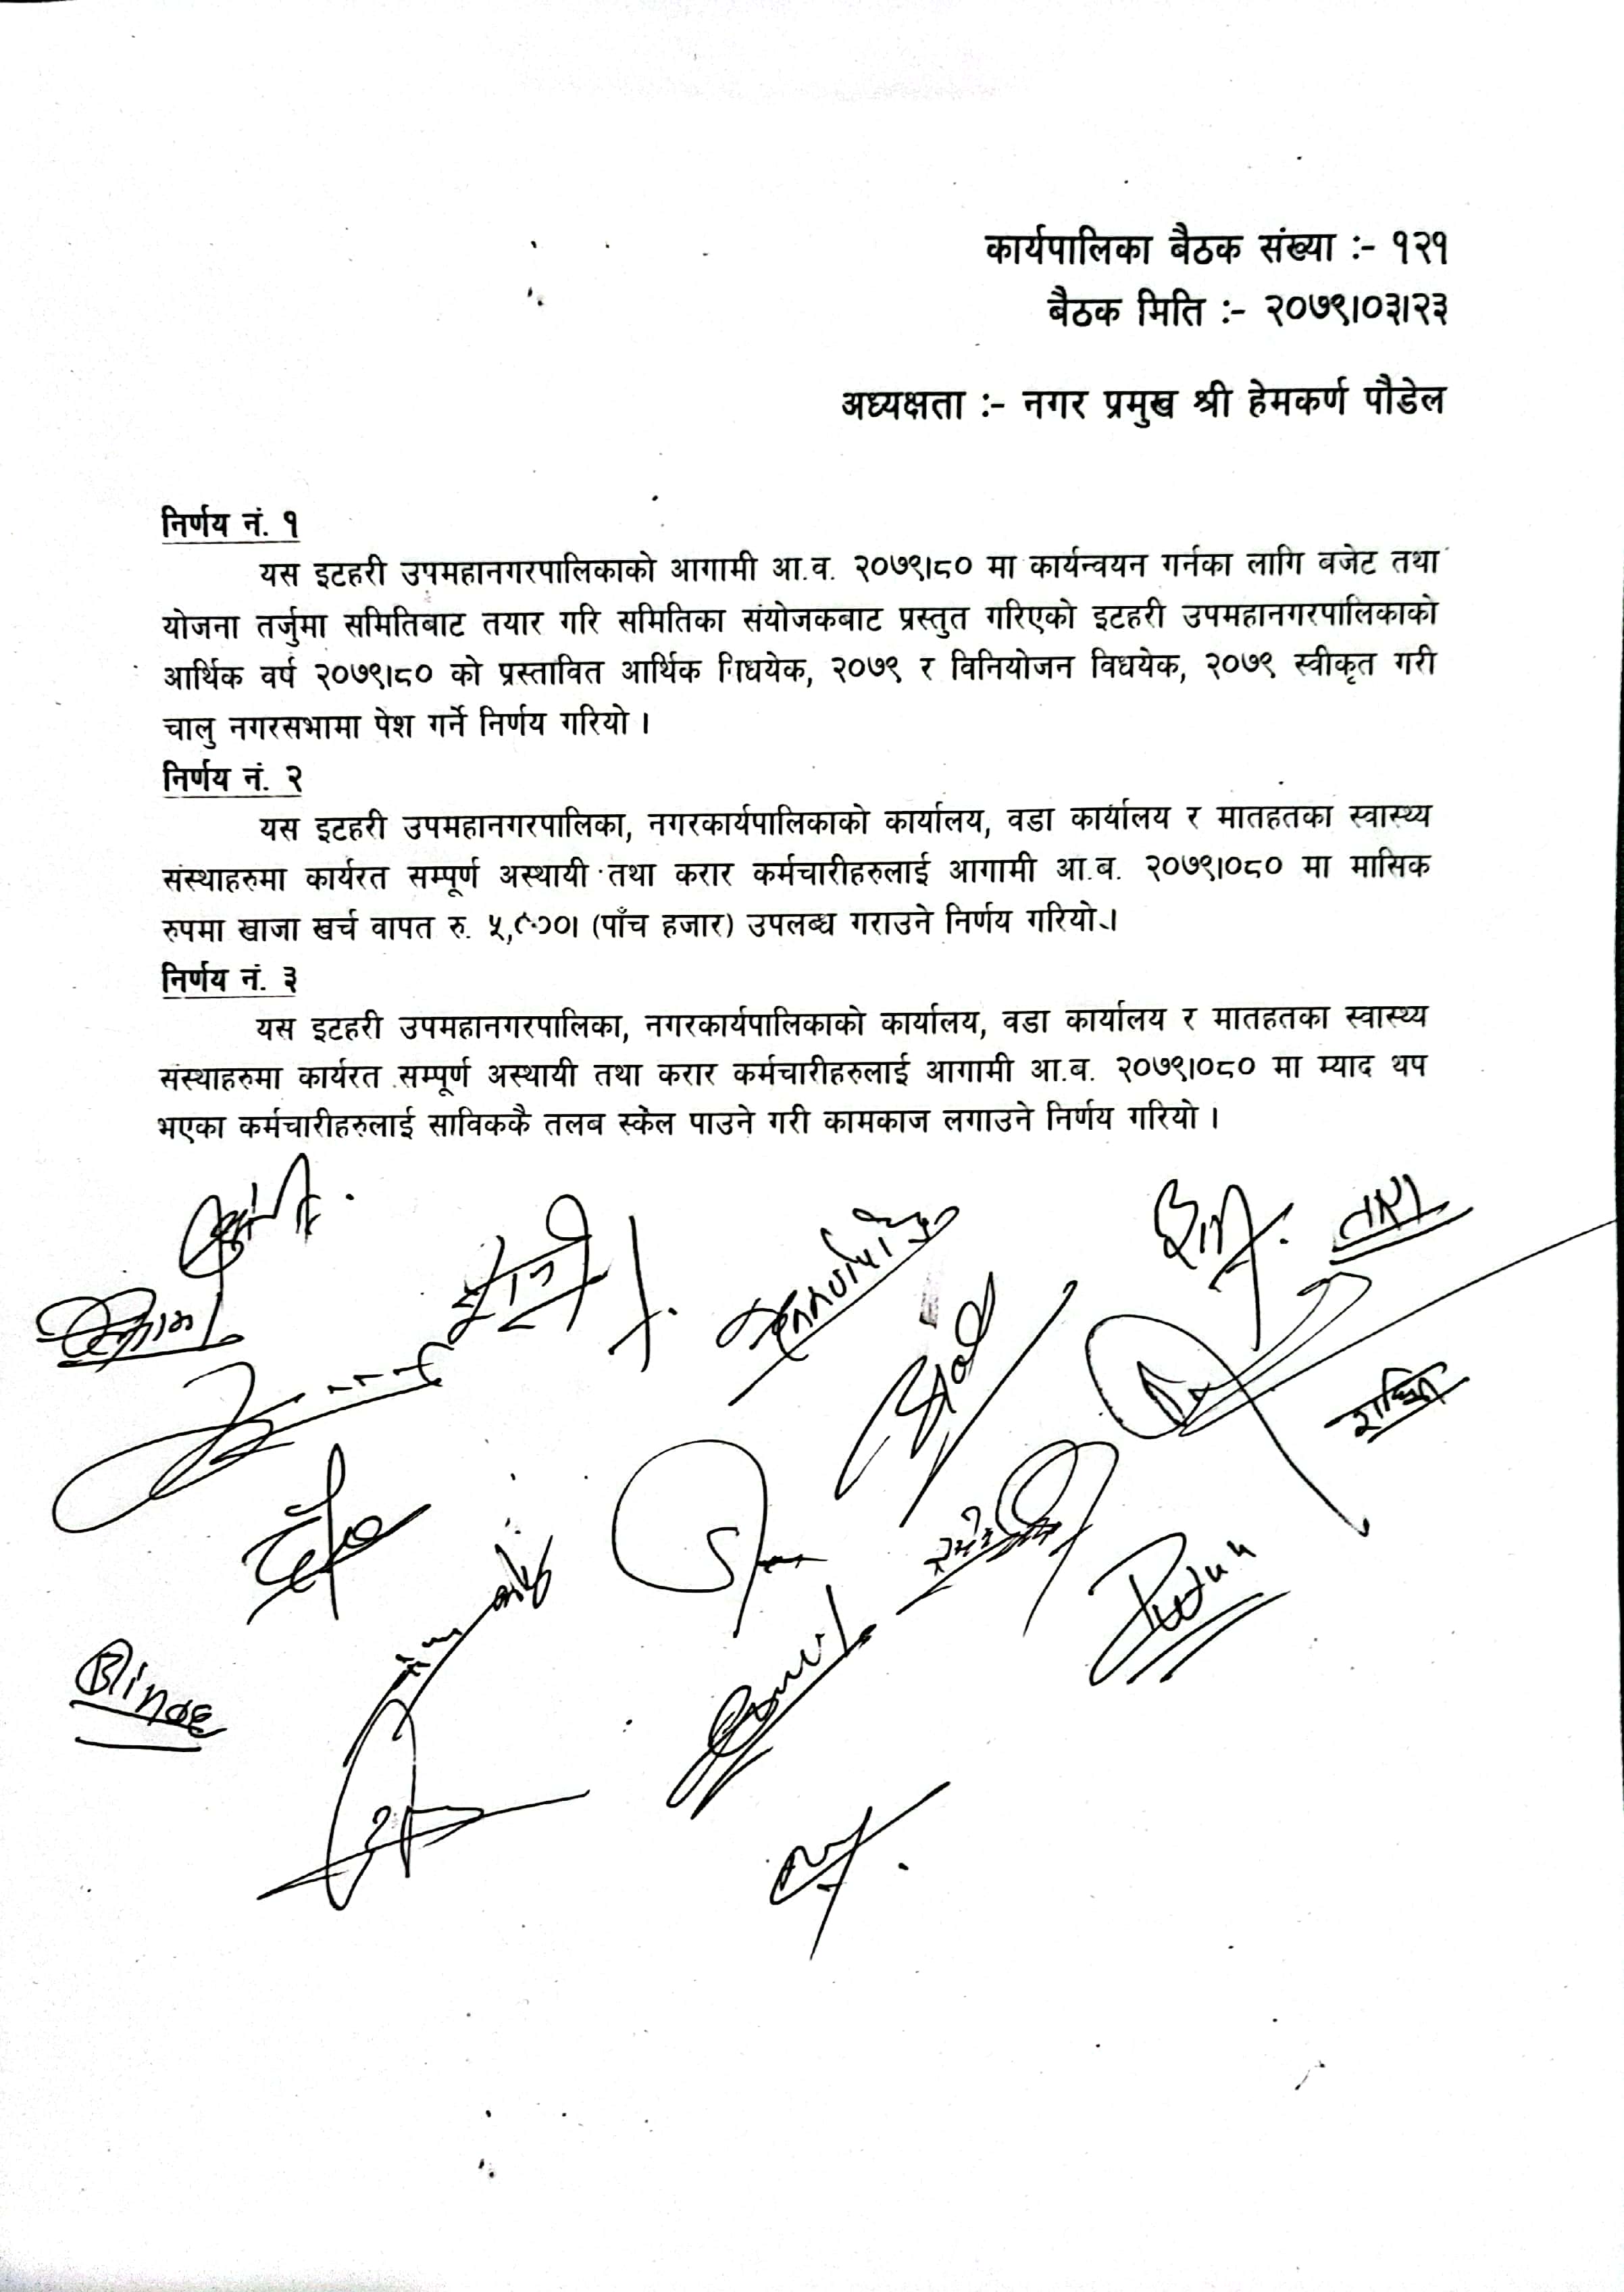 कार्यपालिका बैठक संख्या :- १२१
बैठक मिति :- २०७९।०३।२३
अध्यक्षता :- नगर प्रमुख श्री हेमकर्ण पौडेल
निर्णय नं. १
यस इटहरी उपमहानगरपालिकाको आगामी आ.व. २०७९।८० मा कार्यन्वयन गर्नका लागि बजेट तथा
योजना तर्जुमा समितिबाट तयार गरि समितिका संयोजकबाट प्रस्तुत गरिएको इटहरी उपमहानगरपालिकाको
आर्थिक वर्ष २०७९।८० को प्रस्तावित आर्थिक विधयेक, २०७९ र विनियोजन विधयेक, २०७९ स्वीकृत गरी
चालु नगरसभामा पेश गर्ने निर्णय गरियो ।
निर्णय नं. २
यस इटहरी उपमहानगरपालिका, नगरकार्यपालिकाको कार्यालय, वडा कार्यालय र मातहतका स्वास्थ्य
संस्थाहरुमा कार्यरत सम्पूर्ण अस्थायी तथा करार कर्मचारीहरुलाई आगामी आ.ब. २०७९।०८० मा मासिक
रुपमा खाजा खर्च वापत रु. (पाँच हजार) उपलब्ध गराउने निर्णय गरियो ।
निर्णय नं. ३
यस इटहरी उपमहानगरपालिका, नगरकार्यपालिकाको कार्यालय, वडा कार्यालय र मातहतका स्वास्थ्य
संस्थाहरुमा कार्यरत सम्पूर्ण अस्थायी तथा करार कर्मचारीहरुलाई आगामी आ.ब. २०७९।०८० मा म्याद थप
भएका कर्मचारीहरुलाई साविककै तलब स्केल पाउने गरी कामकाज लगाउने निर्णय गरियो ।
तारा